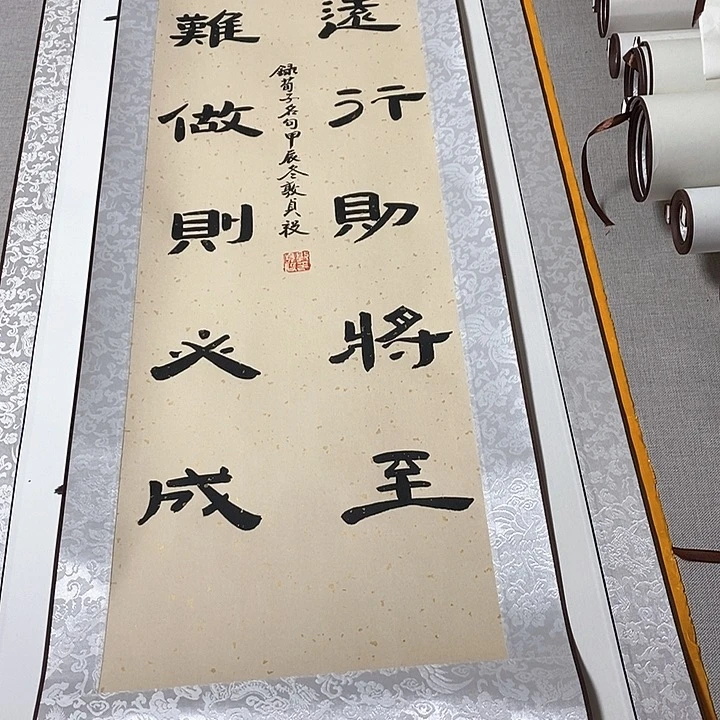 遠行則將至
難做則必成
錄荀子名句甲辰冬敦貞